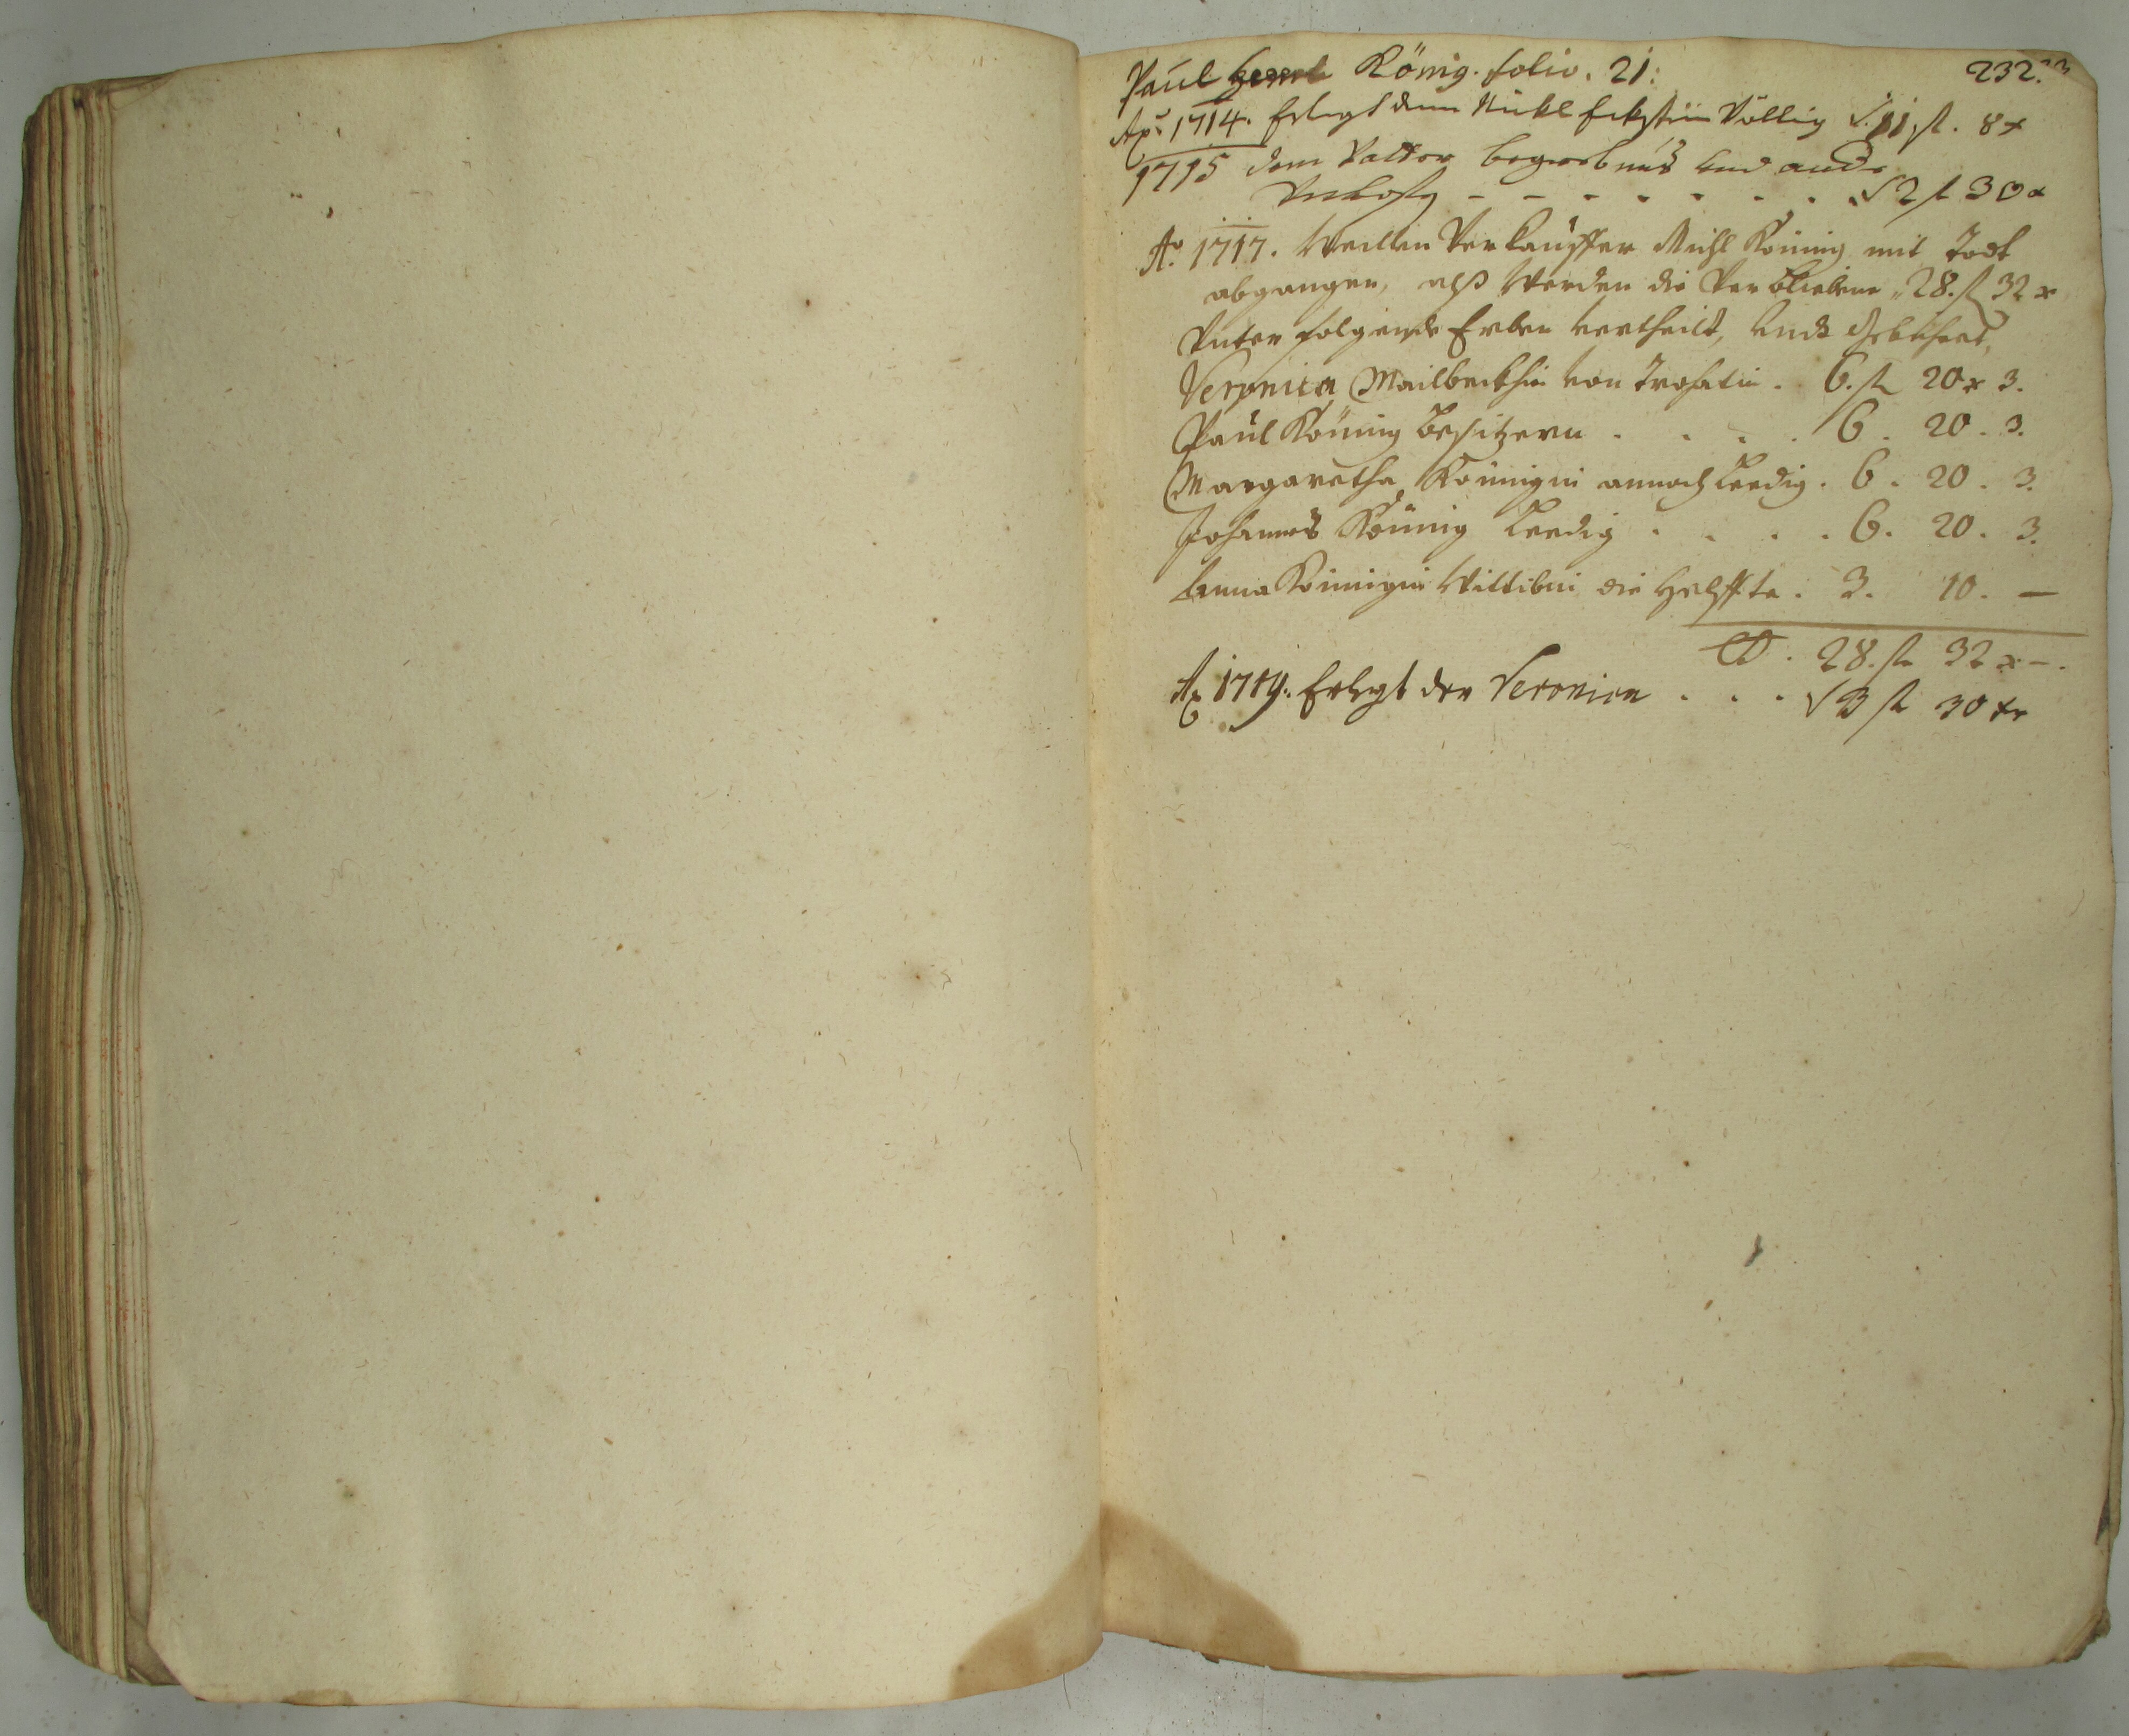 Paul König. folio. 21: 232.
Ao 1714. Erlegt dem Nickl Eckstein Völlig 11 fl. 8 x
1715 dem Vatter begrebnus und andr
Unkosten - - - - - - - 2 fl 30 x
Ao. 1717. Weillen Verkauffer Michl Könnig mit Todt
abgangen, alß Werden die Verbliebene 28. fl 32 x
Unter folgende Erben vertheilt, undt gebühret,
Veronica Mailbeckhin von Trohatin . 6. fl 20 x 3.
Paul Könnig besitzern . . . . 6 . 20 . 3.
Margaretha Könnigin annoch Leedig . 6 . 20 . 3.
Johannes Könnig Leedig . . . . 6 . 20 . 3.
Anna Könnigin Wittibin die Helffte . 3. 10. —
28. fl 32 x —.
Ao 1719. Erlegt der Veronica . . . 3 fl 30 xr